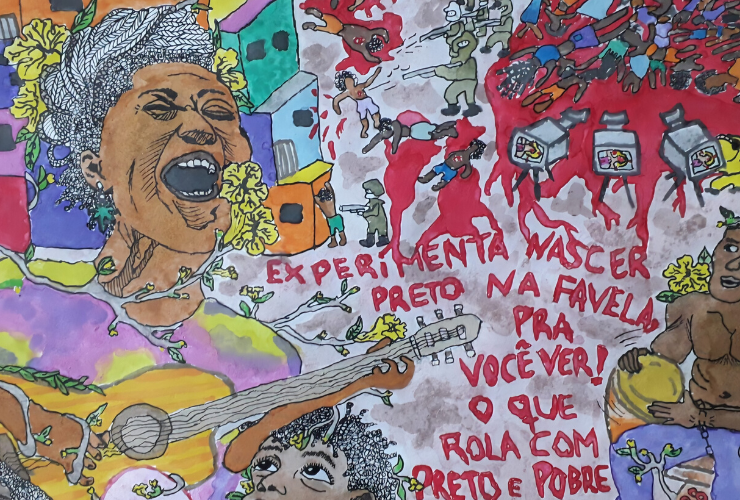 EXPERIMENTA NASCER
PRETO NA FAVELA,
PRA
VOCÊ VER!
O QUE
ROLA COM
PRETO E POBRE